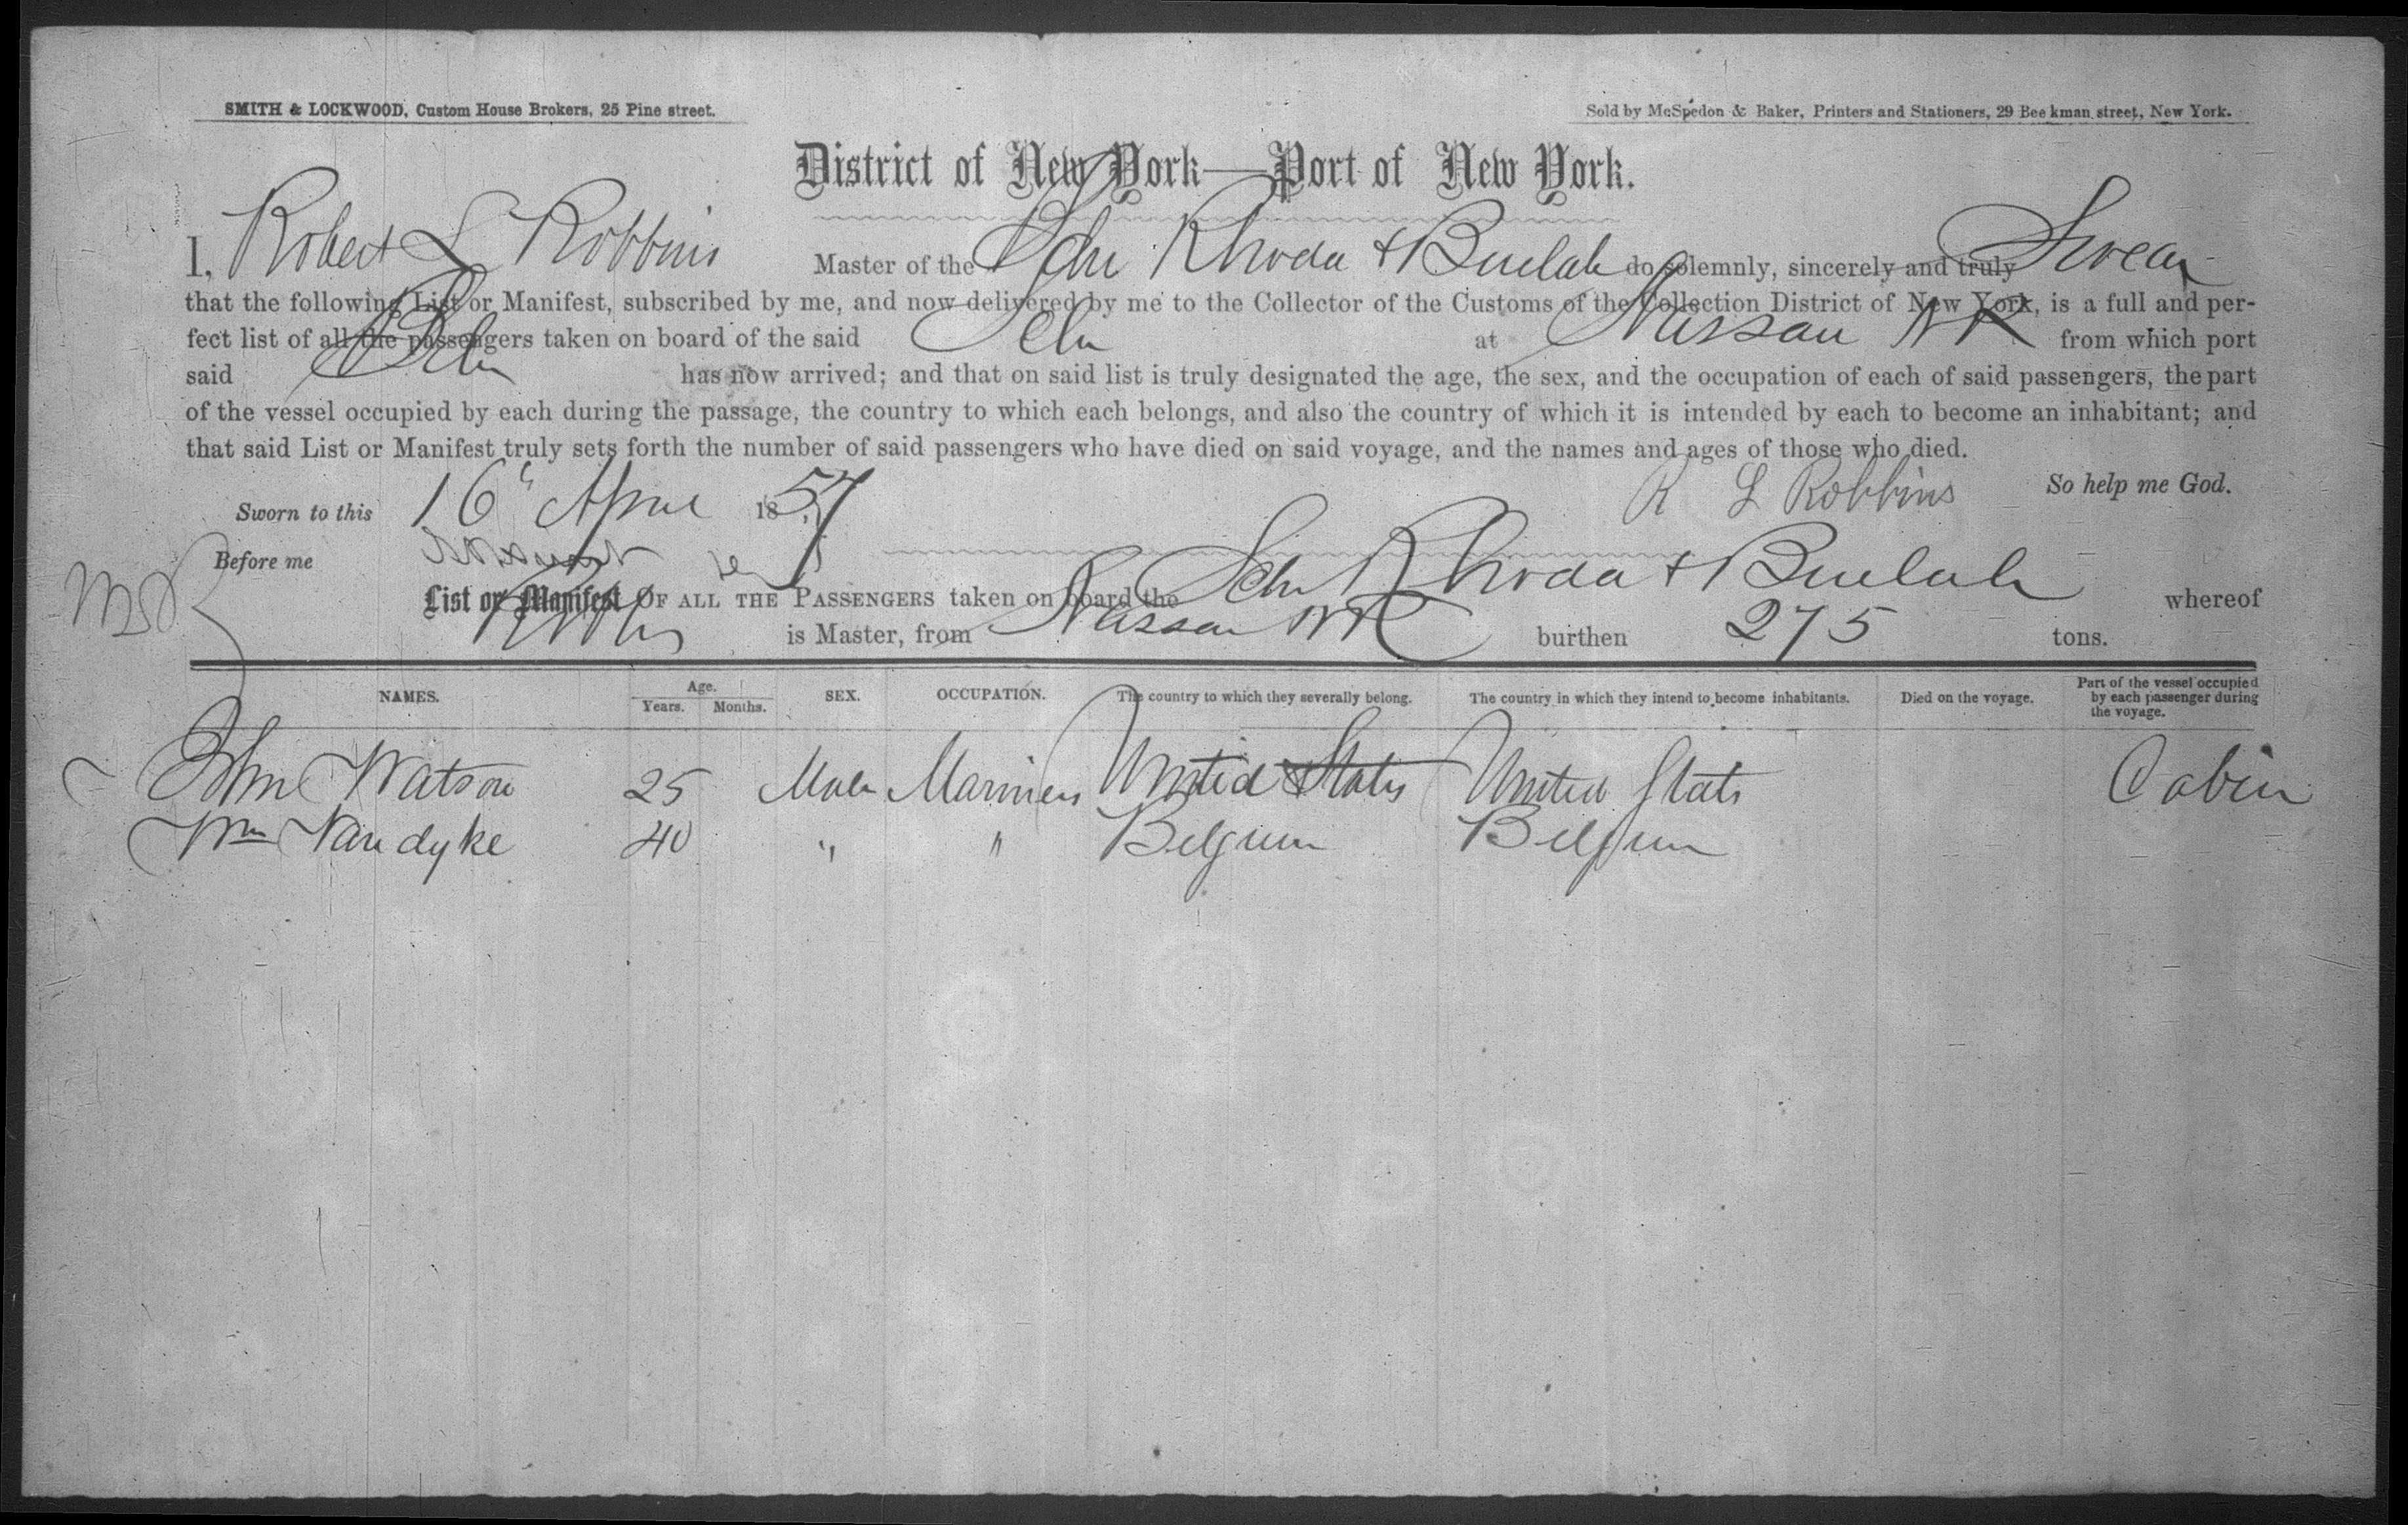 SMITH & LOCKWOOD, Custom House Brokers, 25 Pine street.
Sold by McSpedon & Baker, Printers and Stationers, 29 Beekman street, New York.
District of New York—Port of New York.
I, Robert L Robbins Master of the Schr Rhoda & Beulah do solemnly, sincerely and truly Swear
that the following List or Manifest, subscribed by me, and now delivered by me to the Collector of the Customs of the Collection District of New York, is a full and per-
fect list of all the passengers taken on board of the said Schr at Nassau NP from which port
said Schr has now arrived; and that on said list is truly designated the age, the sex, and the occupation of each of said passengers, the part
of the vessel occupied by each during the passage, the country to which each belongs, and also the country of which it is intended by each to become an inhabitant; and
that said List or Manifest truly sets forth the number of said passengers who have died on said voyage, and the names and ages of those who died.
R L Robbins So help me God.
Sworn to this 16 April 1857
Before me
List or Manifest OF ALL THE PASSENGERS taken on board the Schr Rhoda & Beulah whereof
Robbins is Master, from Nassau NP burthen 275 tons.
NAMES. Age. Years. Months. SEX. OCCUPATION. The country to which they severally belong. The country in which they intend to become inhabitants. Died on the voyage. Part of the vessel occupied by each passenger during the voyage.
John Watson 25 Male Mariners United States United States Cabin
Wm Vandyke 40 " " Belgium Belgium